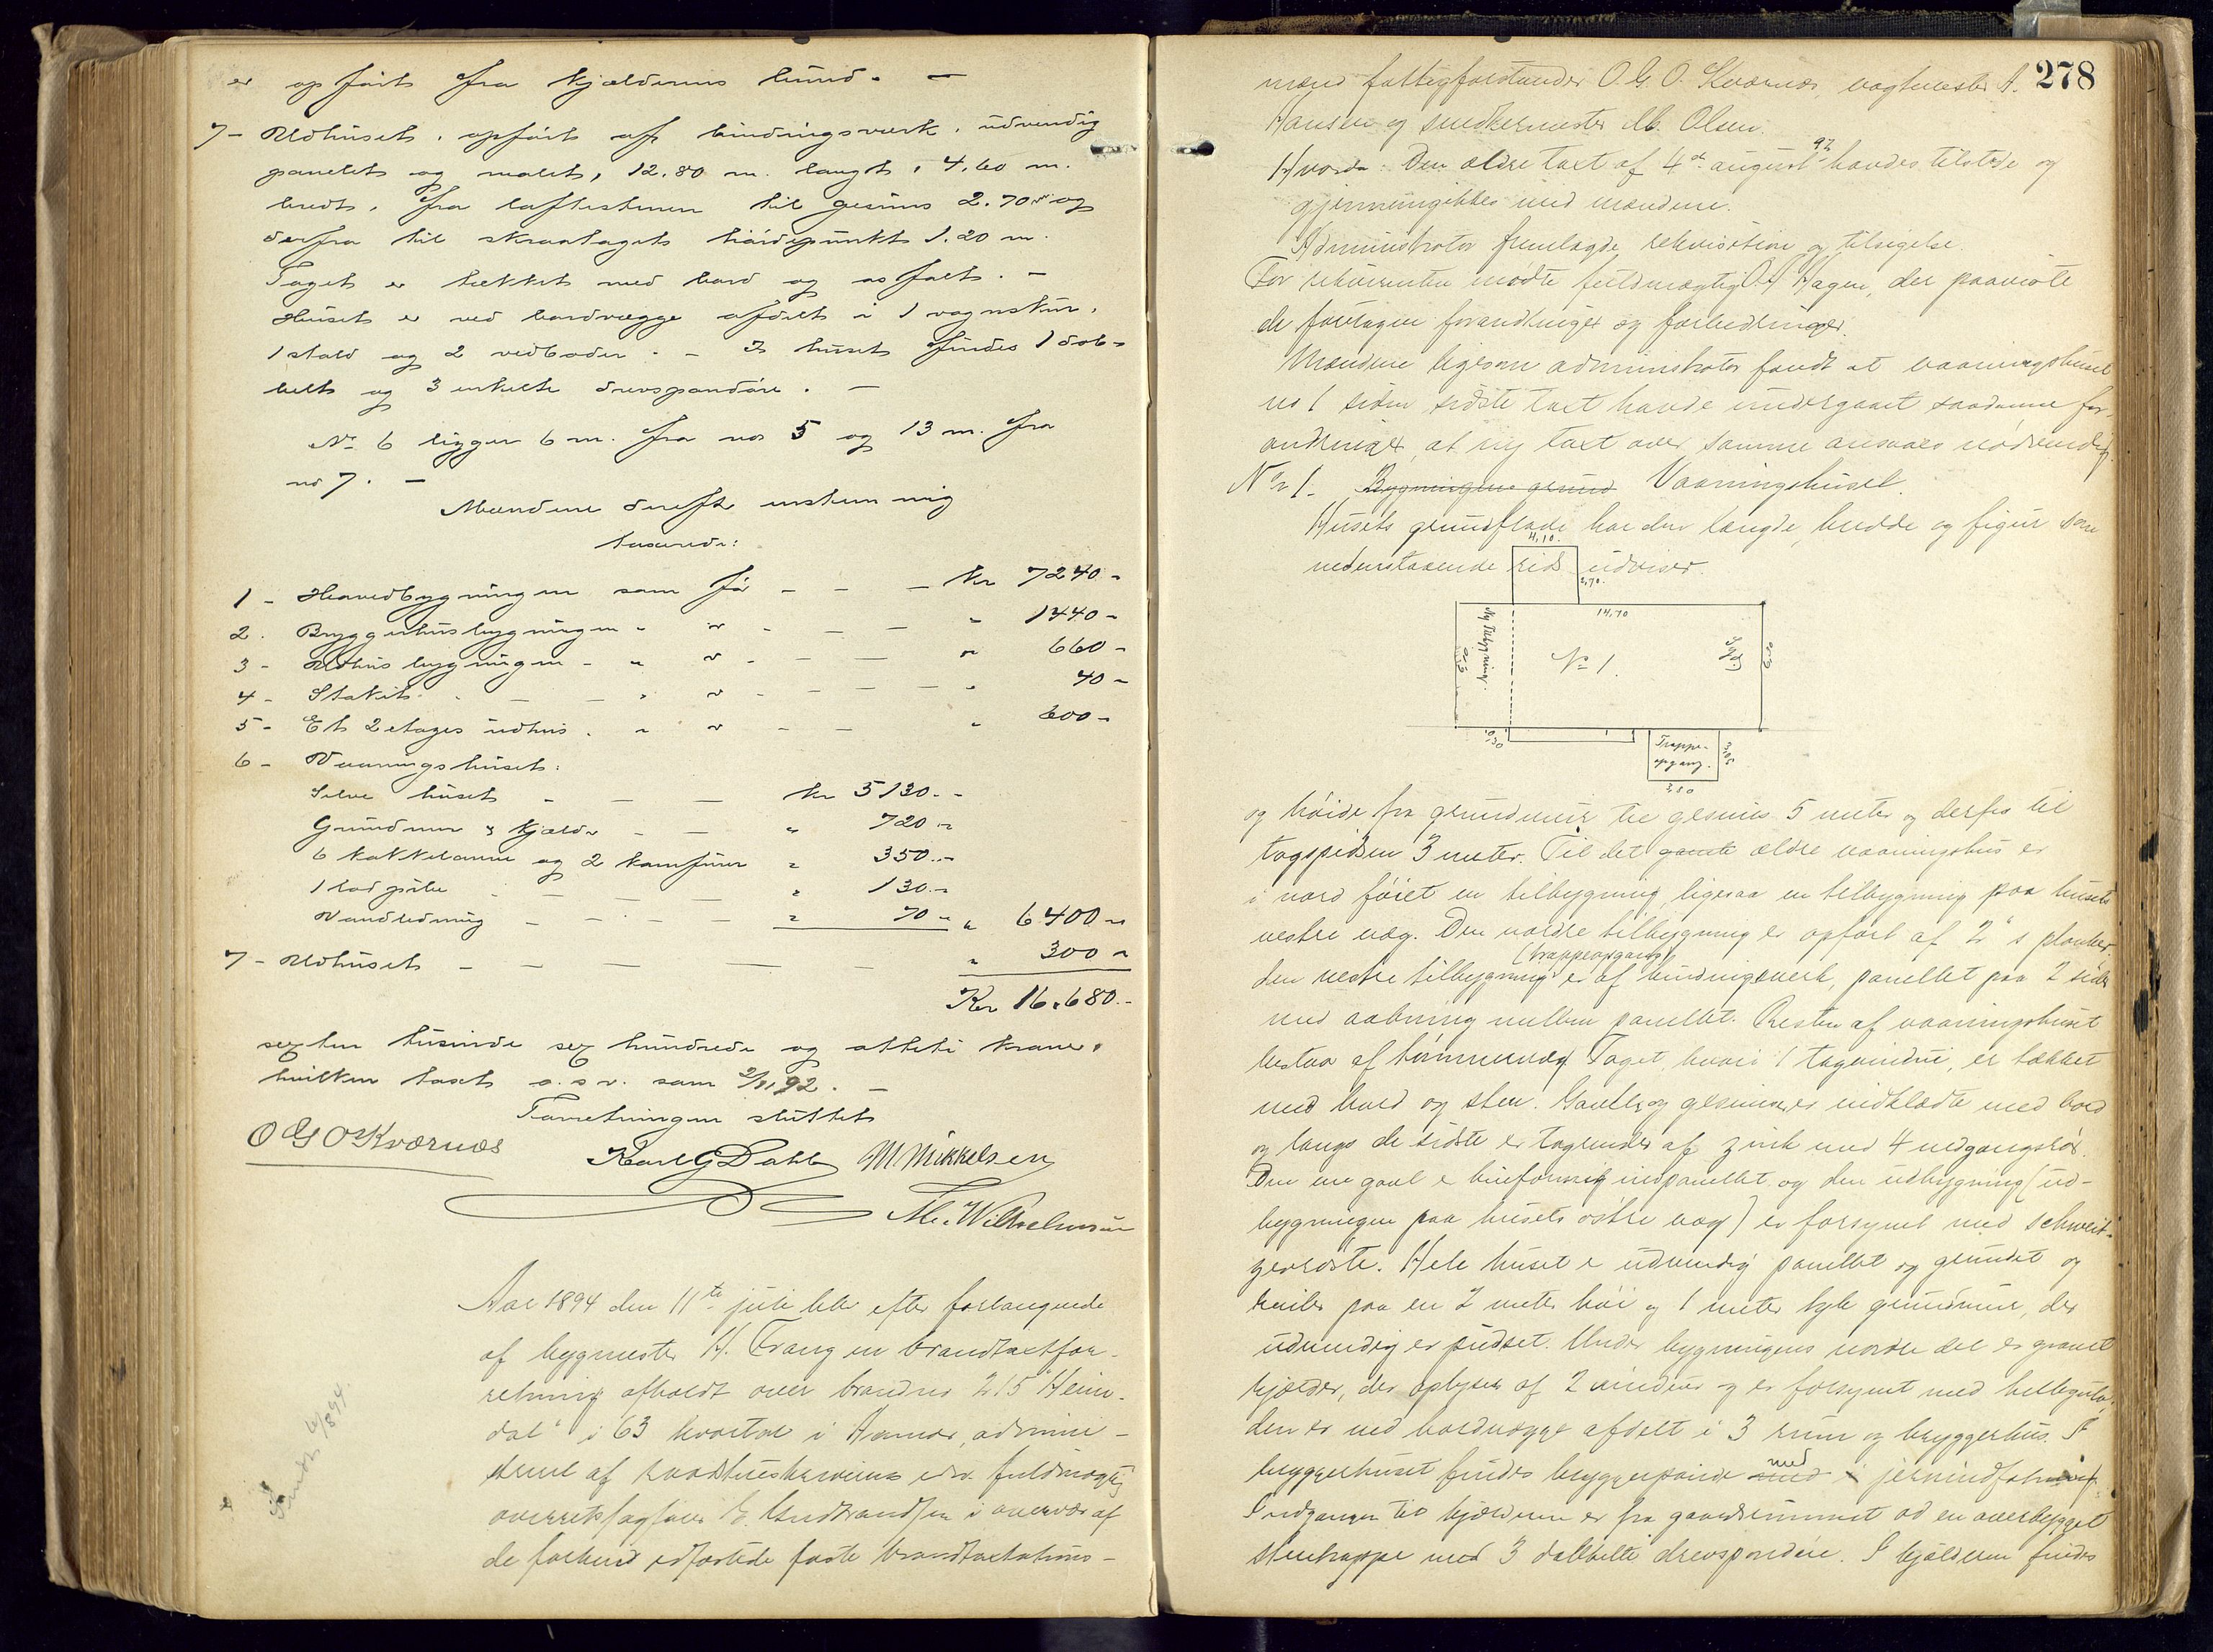 er opført fra kjælderens bund. —
7- Udhuset, opført af bindingsværk, udvendig
panelet og malet, 12.80 m. langt, 4.60 m.
bredt, fra laftestenen til gesims 2.70 m og
derfra til skraatagets høidepunkt 1.20 m.
Taget er tækket med bord og asfalt. —
Huset er ved bordvægge afdelt i 1 vognskur,
1 stald og 2 vedboder. — I huset findes 1 dob-
belt og 3 enkelte drevspandøre. —
No 6 ligger 6 m. fra no 5 og 13 m. fra
no 7. —
Mændene derefter enstemmig
taxerede:
1 - Hovedbygningen som før - - - Kr 7240 -
2. Bryggerhusbygningen - " - - - " 1440 -
3 - Udhusbygningen - " " - - - " 660 -
4 - Stakit - - - " " - - - - " 40 -
5 - Et 2 etages udhus. " " - - " 600 -
6 - Vaaningshuset:
Selve huset - - - Kr 5130. -
Grundmur & kjælder - - " 720 -
6 kakkelovne og 2 komfurer " 350. -
1 lod pibe - - - - " 130. -
Vandledning - - - - " 70 - " 6400 -
7 - Udhuset - - - - - " 300 -
Kr 16.680. -
sexten tusinde sex hundrede og otteti kroner,
hvilken taxt o.s.v. som 2/11 92. —
Forretningen sluttet
O G O Kværnæs Karl G Dahl M. Mikkelsen
Th. Wilhelmsen
Aar 1894 den 11te juli blev efter forlangende
af bygmester H. Trang en brandtaxtfor-
retning afholdt over brandno 215 "Heim-
dal" i 63 kvartal i Hamar, admini-
streret af raadstueskriverens edsv. fuldmægtig
overretssagfører E. Gudbrandsen i overvær af
de forhen edfæstede faste brandtaxtations-
278
mænd fattigforstander O. G. O. Kværnæs, vagtmester A.
Hansen og snedkermester M. Olsen.
Hvorda: Den ældre taxt af 4de august 92 havdes tilstede og
gjennemgikkes med mændene.
Administrator fremlagde rekvisition og tilsigelse.
For rekvirenten mødte fuldmægtig O. A. Hagen, der paaviste
de foretagne forandringer og forbedringer.
Mændene ligesom administrator fandt at vaaningshuset
no 1 siden sidste taxt havde undergaaet saadanne for-
andringer, at ny taxt over samme ansaaes nødvendig.
No 1. Bygningens grund Vaaningshuset.
Husets grundflade har den længde, bredde og figur som
nedenstaaende rids udviser.
4,10.
2,70.
14,70
Ny Tilbygning.
No 1.
0,30
Trappe-
opgang.
3,50
og høide fra grundmur til gesims 5 meter og derfra til
tagspidsen 3 meter. Til det gamle ældre vaaningshus er
i nord føiet en tilbygning, ligesaa en tilbygning paa husets
vestre væg. Den nordre tilbygning er opført af 2" s planker,
(trappeopgang)
den vestre tilbygning er af bindingsverk, panellet paa 2 sider
med aabning mellem panellet. Resten af vaaningshuset
bestaar af tømmervæg. Taget, hvori 1 tagvindu, er tækket
med bord og sten. Gavle og gesimser er indklædte med bord
og langs de sidste er tagrender af zink med 4 nedgangsrør.
Den ene gavl er bueformig indpanellet og den udbygning (ud-
bygningen paa husets østre væg) er forsynet med schweit-
zerordste. Hele huset er udvendig panellet og grundet og
hviler paa en 2 meter høi og 1 meter tyk grundmur, der
udvendig er pudset. Under bygningens nordre del er gravet
kjælder, der oplyses af 2 vinduer og er forsynet med hellegulv,
den er ved bordvægge afdelt i 3 rum og bryggerhus. I
bryggerhuset findes bryggerpande med med i jernindfatning.
Indgangen til kjælderen er fra gaardsrummet ad en overbygget
stentrappe med 3 dobbelte drevspandøre. I kjælderen findes